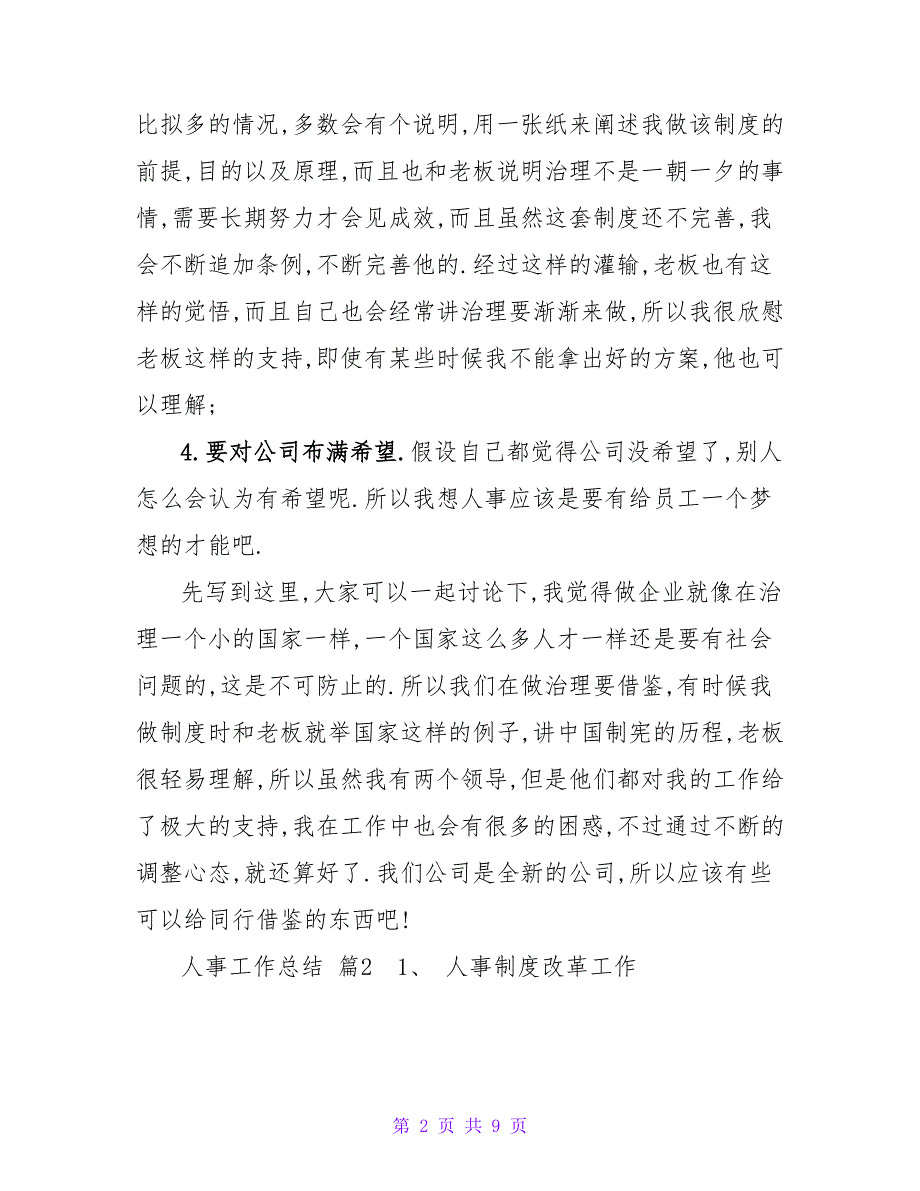 比拟多的情况,多数会有个说明,用一张纸来阐述我做该制度的
前提,目的以及原理,而且也和老板说明治理不是一朝一夕的事
情,需要长期努力才会见成效,而且虽然这套制度还不完善,我
会不断追加条例,不断完善他的.经过这样的灌输,老板也有这
样的觉悟,而且自己也会经常讲治理要渐渐来做,所以我很欣慰
老板这样的支持,即使有某些时候我不能拿出好的方案,他也可
以理解;
4.要对公司布满希望.假设自己都觉得公司没希望了,别人
怎么会认为有希望呢.所以我想人事应该是要有给员工一个梦
想的才能吧.
先写到这里,大家可以一起讨论下,我觉得做企业就像在治
理一个小的国家一样,一个国家这么多人才一样还是要有社会
问题的,这是不可防止的.所以我们在做治理要借鉴,有时候我
做制度时和老板就举国家这样的例子,讲中国制宪的历程,老板
很轻易理解,所以虽然我有两个领导,但是他们都对我的工作给
了极大的支持,我在工作中也会有很多的困惑,不过通过不断的
调整心态,就还算好了.我们公司是全新的公司,所以应该有些
可以给同行借鉴的东西吧!
人事工作总结 篇2 1、 人事制度改革工作
第 2 页 共 9 页